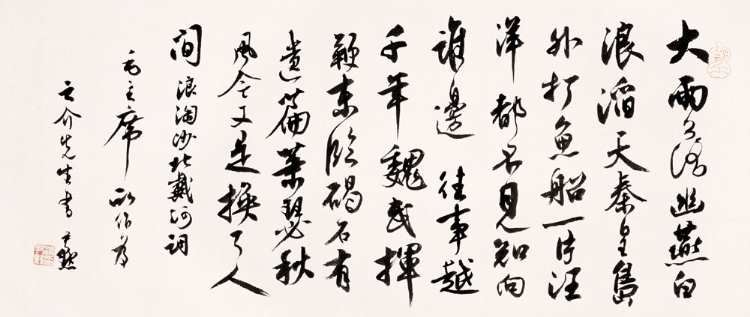 大雨落幽燕白
浪滔天秦皇島
外打魚船一片汪
洋都不見知向
誰邊 往事越
千年魏武揮
鞭東臨碣石有
遺篇蕭瑟秋
風今又是換了人
間 浪淘沙北戴河詞
毛主席 所作為
之介先生書 尹默